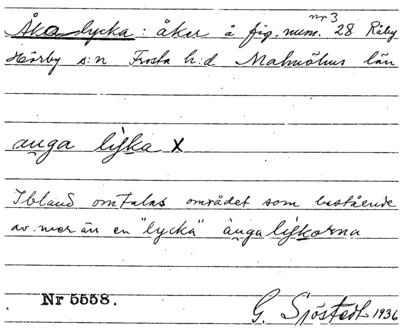 nr 3
Åkalycka: åker å fig. num. 28 Råby
Hörby s:n Frosta h:d Malmöhus län
auga lyka x
Ibland omtalas området som bestående
av mer än en "lycka" àugalykorna
Nr 5558.
G. Sjöstedt 1936